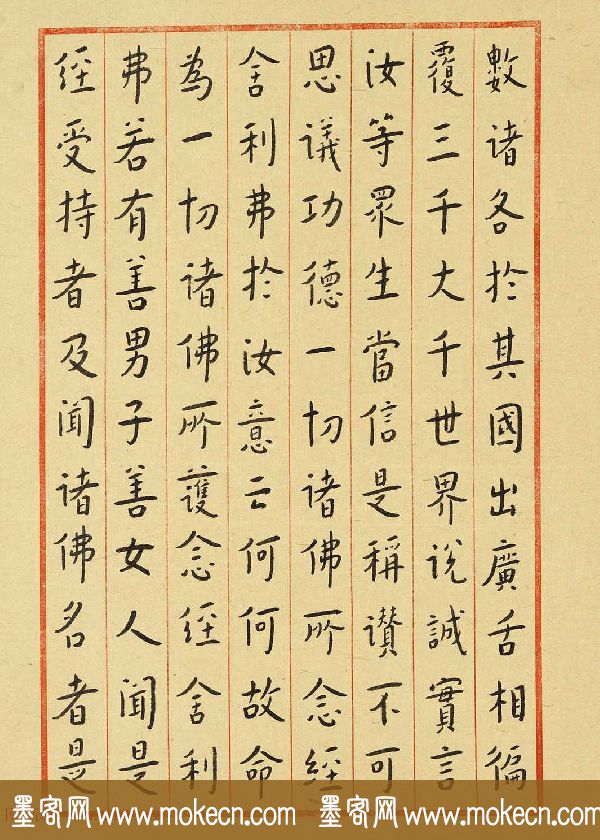 數諸各於其國出廣舌相徧
覆三千大千世界說誠實言
汝等眾生當信是稱讚不可
思議功德一切諸佛所念經
舍利弗於汝意云何何故命
為一切諸佛所護念經舍利
弗若有善男子善女人聞是
經受持者及聞諸佛名者是
墨客网 www.mokecn.com 墨客网 www.mokecn.com